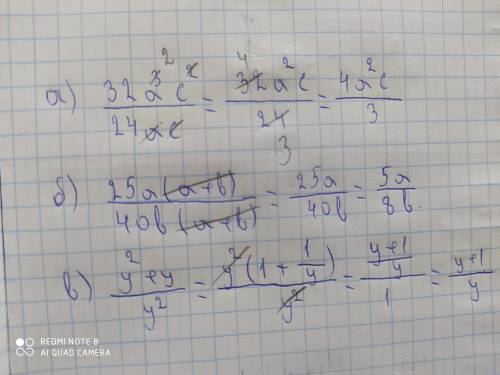 а) 32a³c² / 24ac = 32a²c / 24 = 4a²c / 3
б) 25a(a+b) / 40b(a+b) = 25a / 40b = 5a / 8b.
в) y²+y / y² = y²(1+1/y) / y² = (y+1)/y / 1 = y+1 / y
REDMI NOTE 8
AI QUAD CAMERA